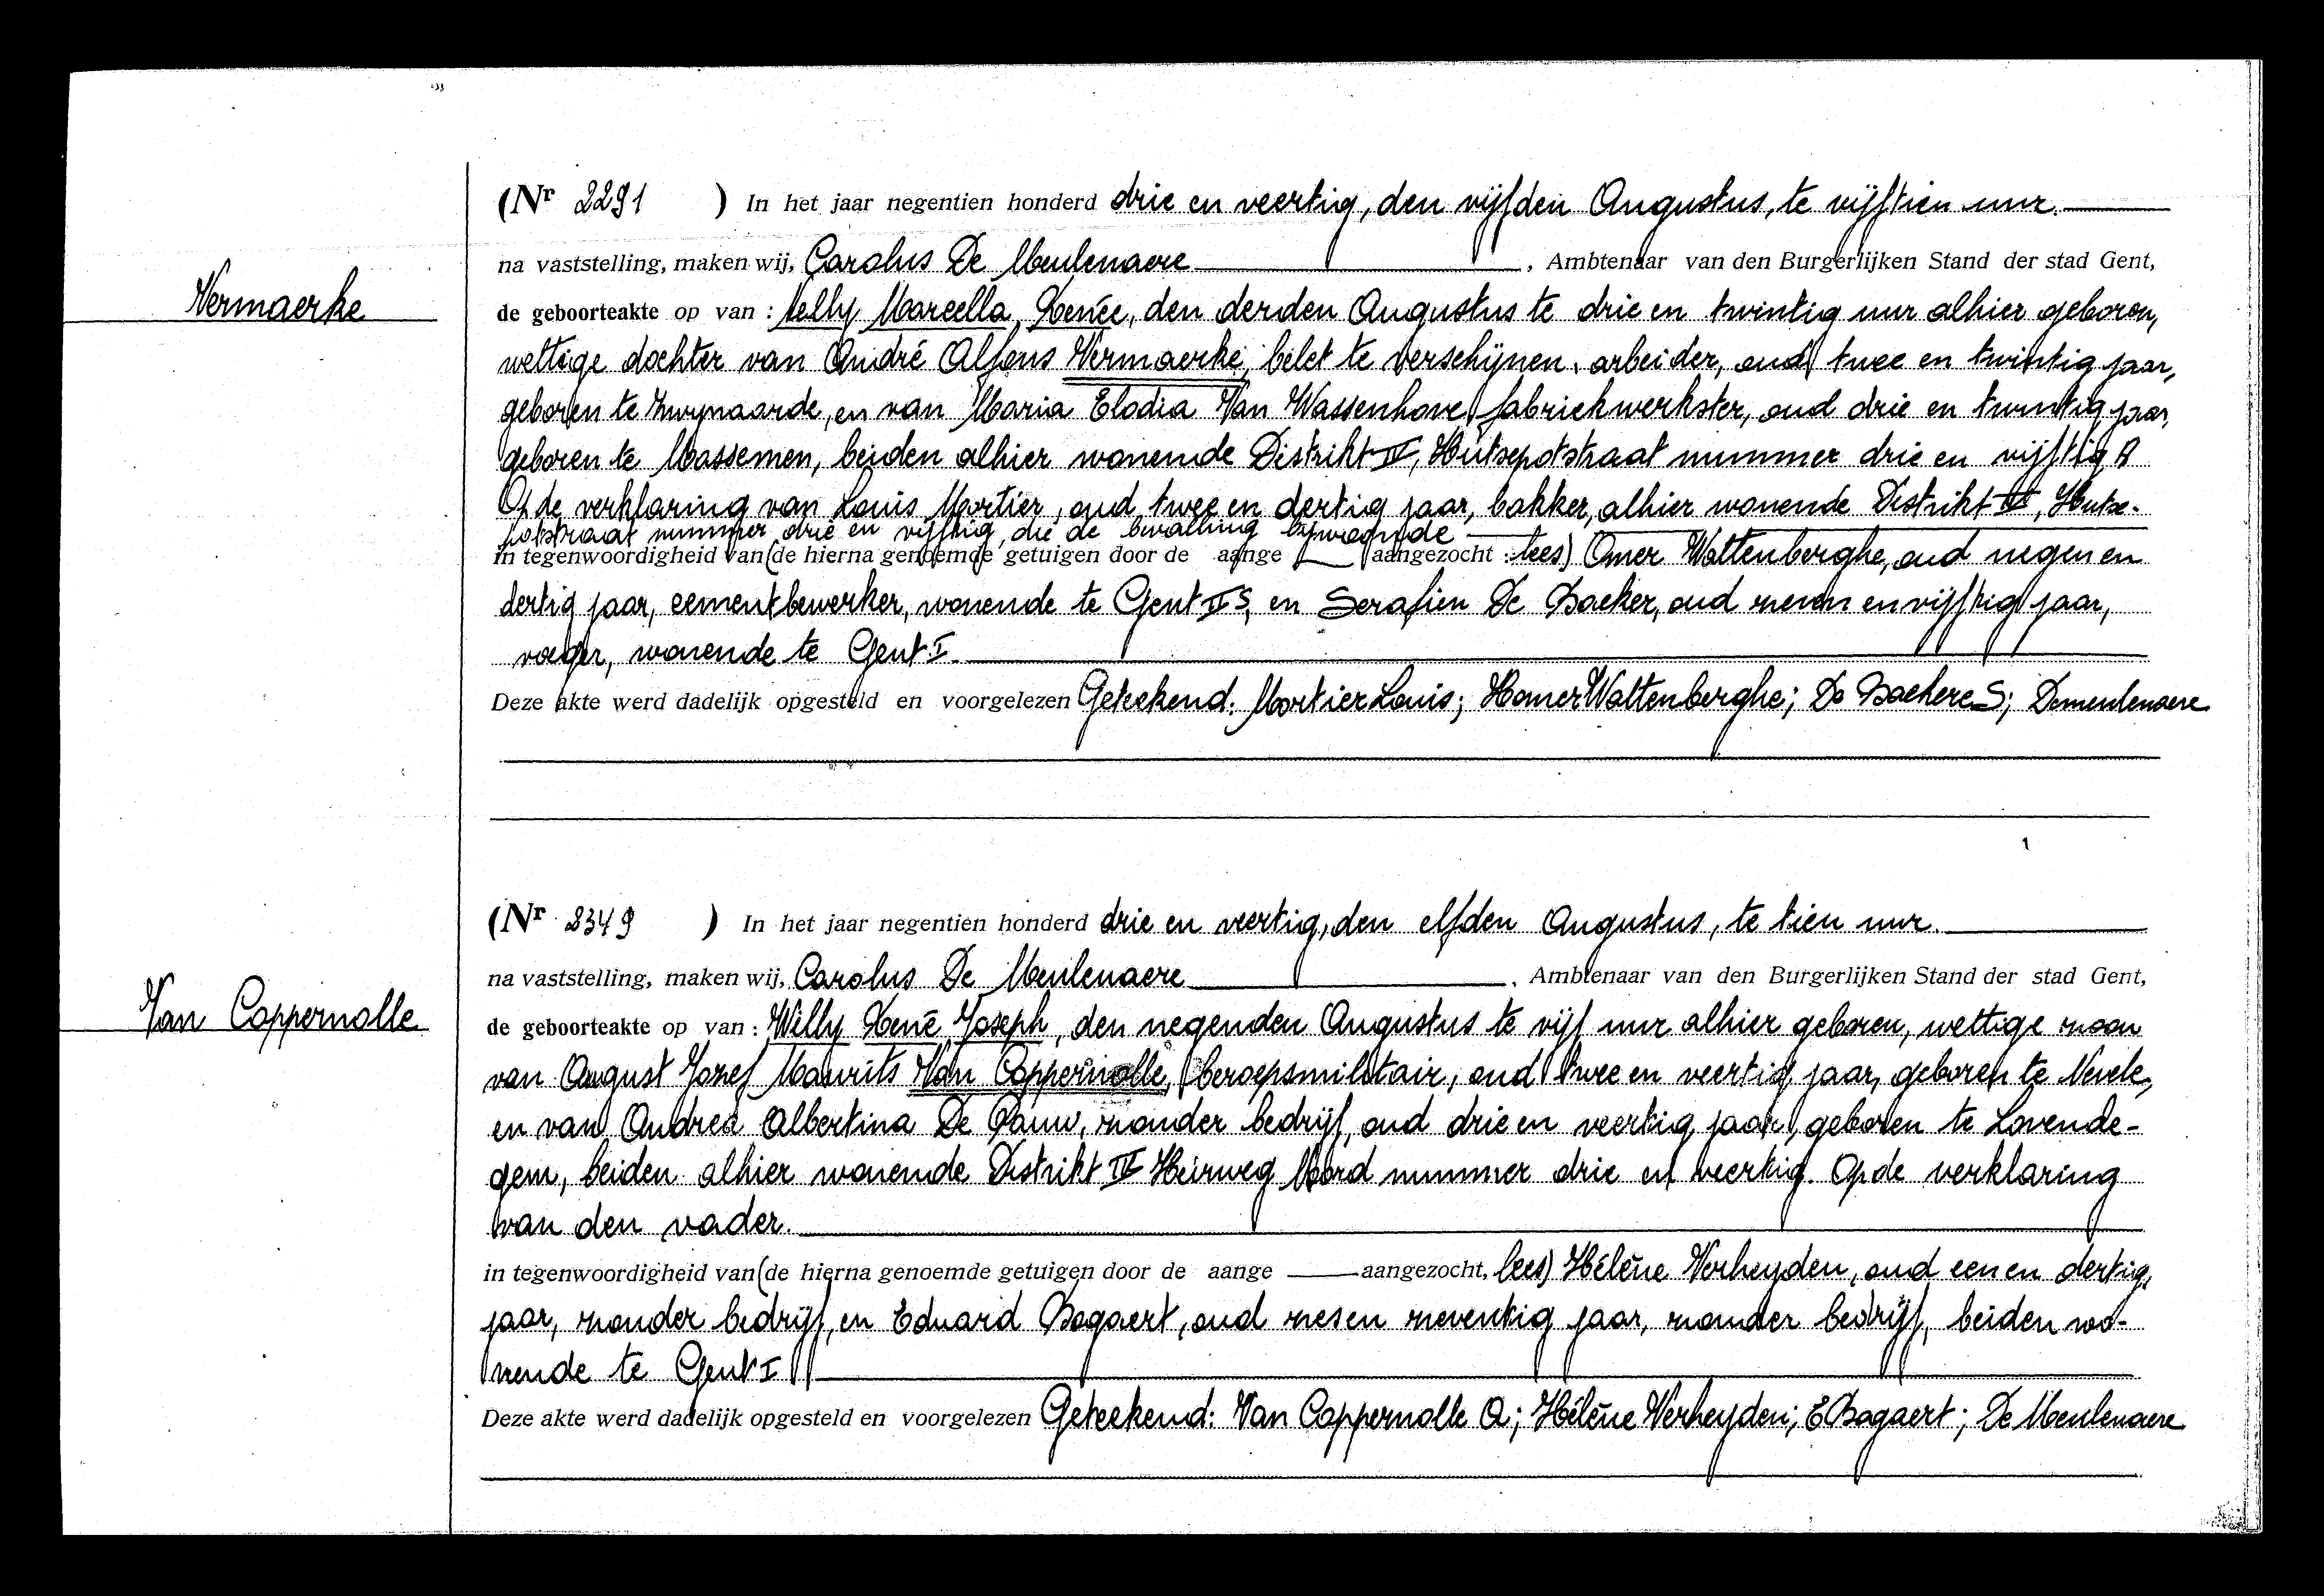 (Nr 2291 ) In het jaar negentien honderd drie en veertig, den vijfden Augustus, te vijftien uur.
na vaststelling, maken wij, Carolus De Meulenaere, Ambtenaar van den Burgerlijken Stand der stad Gent,
Vermaerke
de geboorteakte op van : Nelly Marcella Renée, den derden Augustus te drie en twintig uur alhier geboren,
wettige dochter van André Alfons Vermaerke, belet te verschijnen, arbeider, oud twee en twintig jaar,
geboren te Zwijnaarde, en van Maria Elodia Van Wassenhove, fabriekwerkster, oud drie en twintig jaar,
geboren te Massemen, beiden alhier wonende Distrikt IV, Hutsepotstraat nummer drie en vijftig A
Op de verklaring van Louis Mortier, oud twee en dertig jaar, bakker, alhier wonende Distrikt IV, Hutse-
potstraat nummer drie en vijftig, die de bevalling bijwoonde
in tegenwoordigheid van (de hierna genoemde getuigen door de aange aangezocht : lees) Omer Wattenberghe, oud negen en
dertig jaar, cementbewerker, wonende te Gent II S, en Serafien De Backer, oud zeven en vijftig jaar,
voeger, wonende te Gent I.
Deze akte werd dadelijk opgesteld en voorgelezen Geteekend: Mortier Louis; Homer Wattenberghe; De Baekere S; Demeulenaere
(Nr 2349 ) In het jaar negentien honderd drie en veertig, den elfden Augustus, te tien uur.
na vaststelling, maken wij, Carolus De Meulenaere, Ambtenaar van den Burgerlijken Stand der stad Gent,
Van Coppernolle
de geboorteakte op van : Willy René Joseph, den negenden Augustus te vijf uur alhier geboren, wettige zoon
van August Jozef Maurits Van Coppernolle, beroepsmilitair, oud twee en veertig jaar, geboren te Nevele,
en van Andrea Albertina De Pauw, zonder bedrijf, oud drie en veertig jaar, geboren te Lovende-
gem, beiden alhier wonende Distrikt IV Heirweg Noord nummer drie en veertig. Op de verklaring
van den vader.
in tegenwoordigheid van (de hierna genoemde getuigen door de aange aangezocht, lees) Hélène Verheyden, oud een en dertig
jaar, zonder bedrijf, en Eduard Bogaert, oud zes en zeventig jaar, zonder bedrijf, beiden wo-
nende te Gent I
Deze akte werd dadelijk opgesteld en voorgelezen Geteekend: Van Coppernolle A; Hélène Verheyden; E Bogaert; De Meulenaere